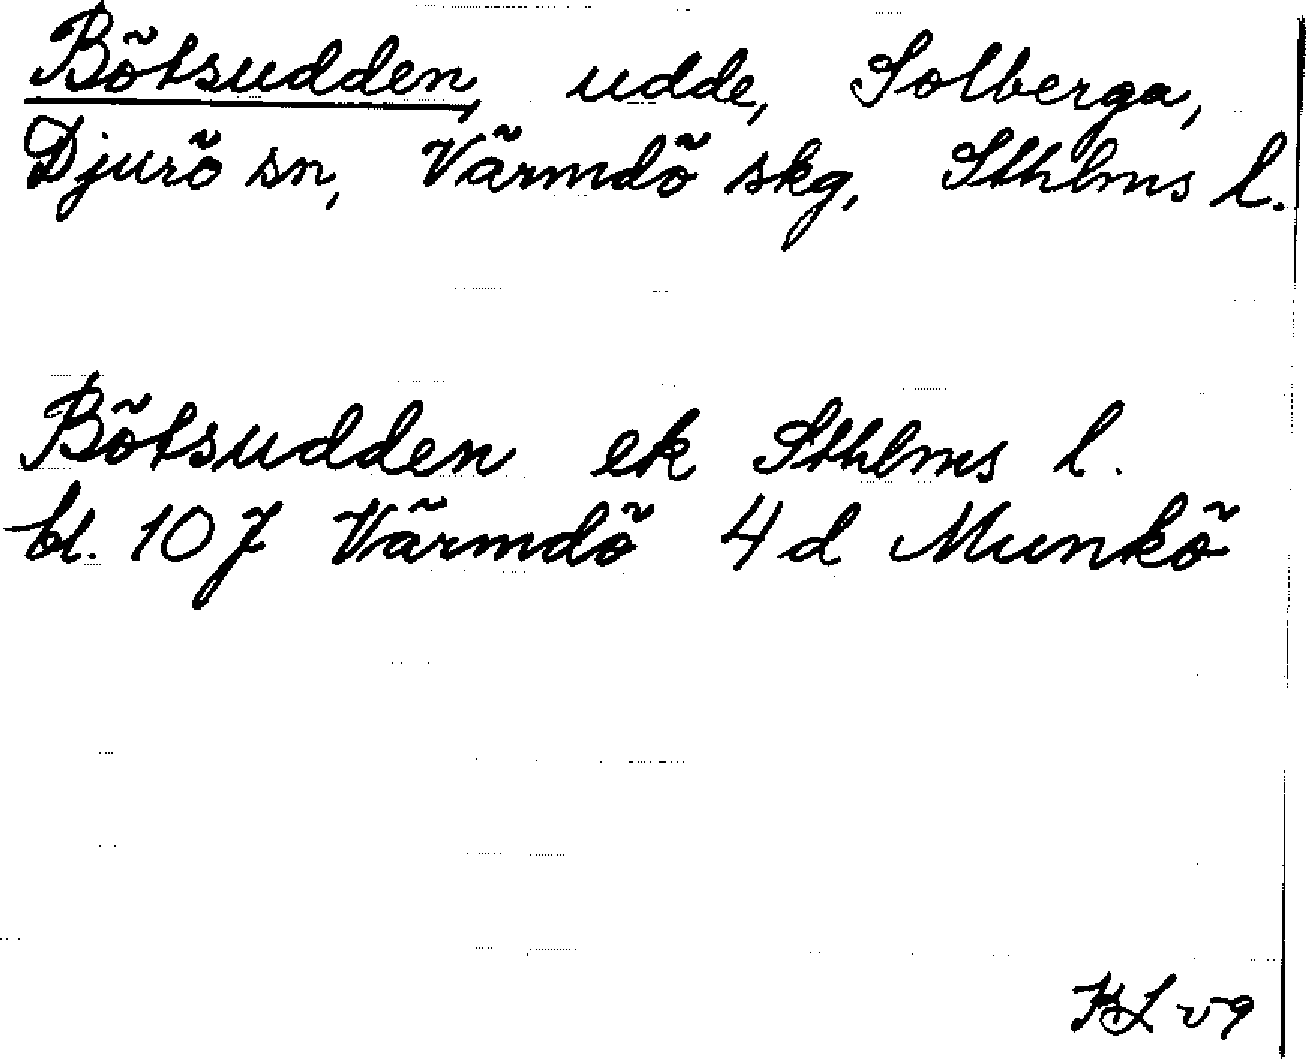 Bötsudden, udde, Solberga,
Djurö sn, Värmdö skg, Sthlms l.
Bötsudden ek Sthlms l.
bl. 107 Värmdö 4d Munkö